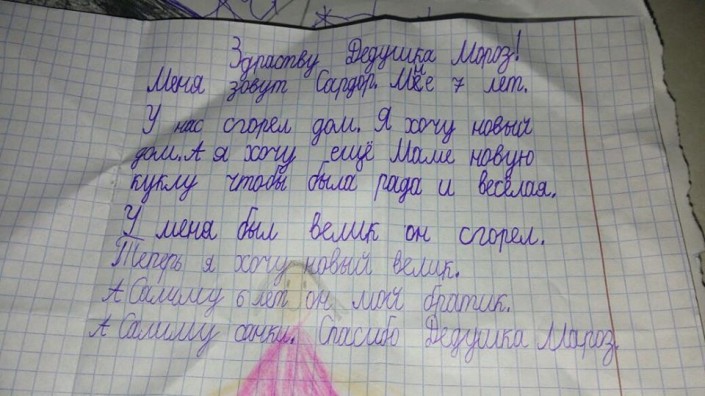 Здраству Дедушка Мороз!
Меня зовут Сардор. Мне 7 лет.
У нас сгорел дом. Я хочу новый
дом. А я хочу ещё Маме новую
куклу чтобы была рада и весёлая.
У меня был велик он сгорел.
Теперь я хочу новый велик.
А Салиму 6 лет он мой братик.
А Салиму санки. Спасибо Дедушка Мароз.